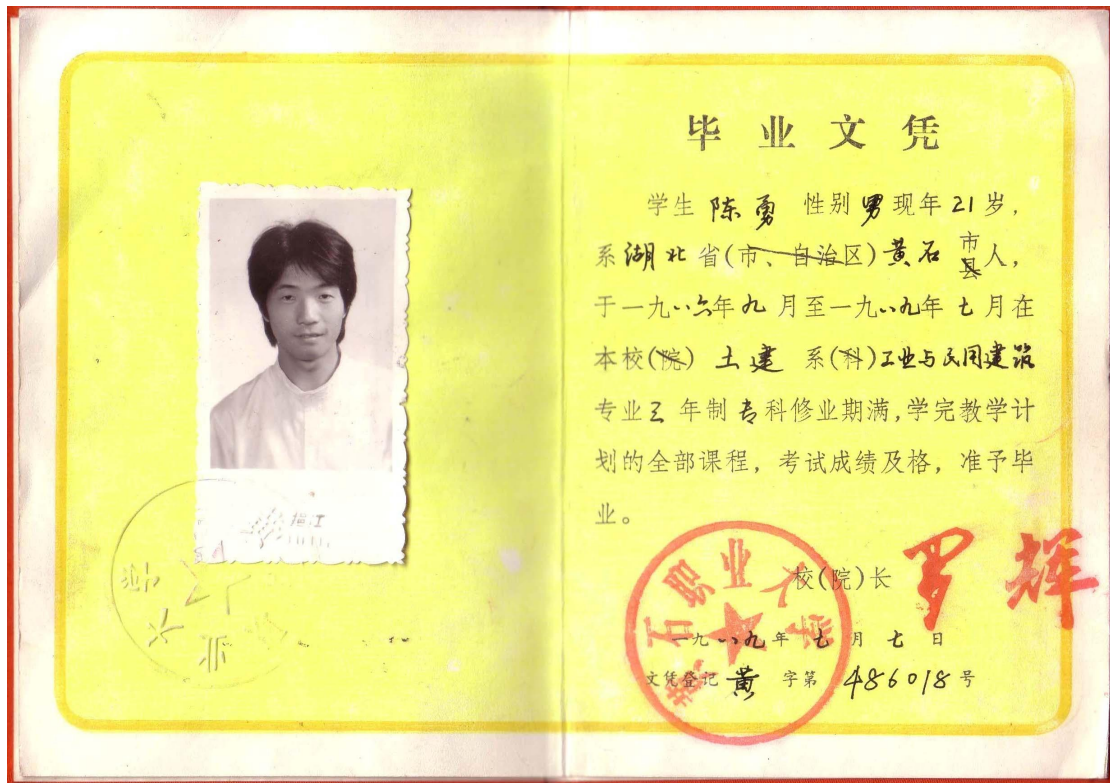 毕业文凭
学生 陈勇 性别 男 现年 21 岁，
系 湖北 省（市、自治区）黄石 市县人，
于一九八六年九月至一九八九年七月在
本校（院）土建 系（科）工业与民用建筑
专业三年制专科修业期满，学完教学计
划的全部课程，考试成绩及格，准予毕
业。
校（院）长 罗辉
黄石职业大学
一九八九年七月七日
文凭登记 黄 字第 486018 号